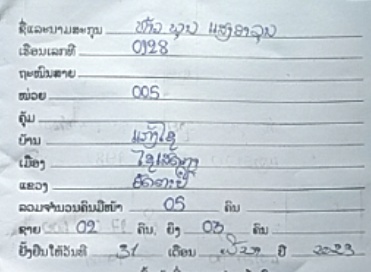 ຊື່ແລະນາມສະກຸນ ທ້າວ ບຸນ ແສງອາລຸນ
ເຮືອນເລກທີ 0128
ຖະໜົນສາຍ
ໜ່ວຍ 005
ຄຸ້ມ
ບ້ານ
ເມືອງ ໄຊເສດຖາ
ແຂວງ ອັດຕະປື
ລວມຈຳນວນຄົນມີໜ້າ 05 ຄົນ
ຊາຍ 02 ຄົນ, ຍິງ 03 ຄົນ
ຢັ້ງຢືນໃຫ້ວັນທີ 31 ເດືອນ ປີ 2023